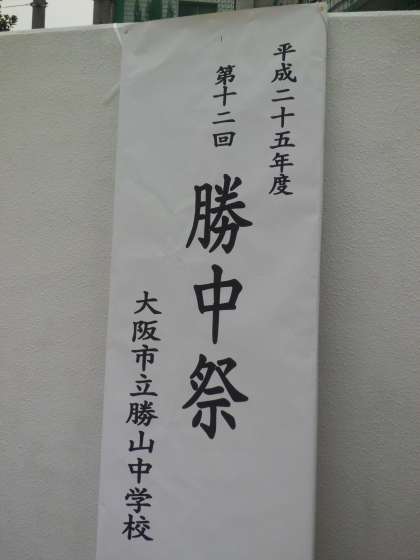 平成二十五年度
第十二回
勝中祭
大阪市立勝山中学校